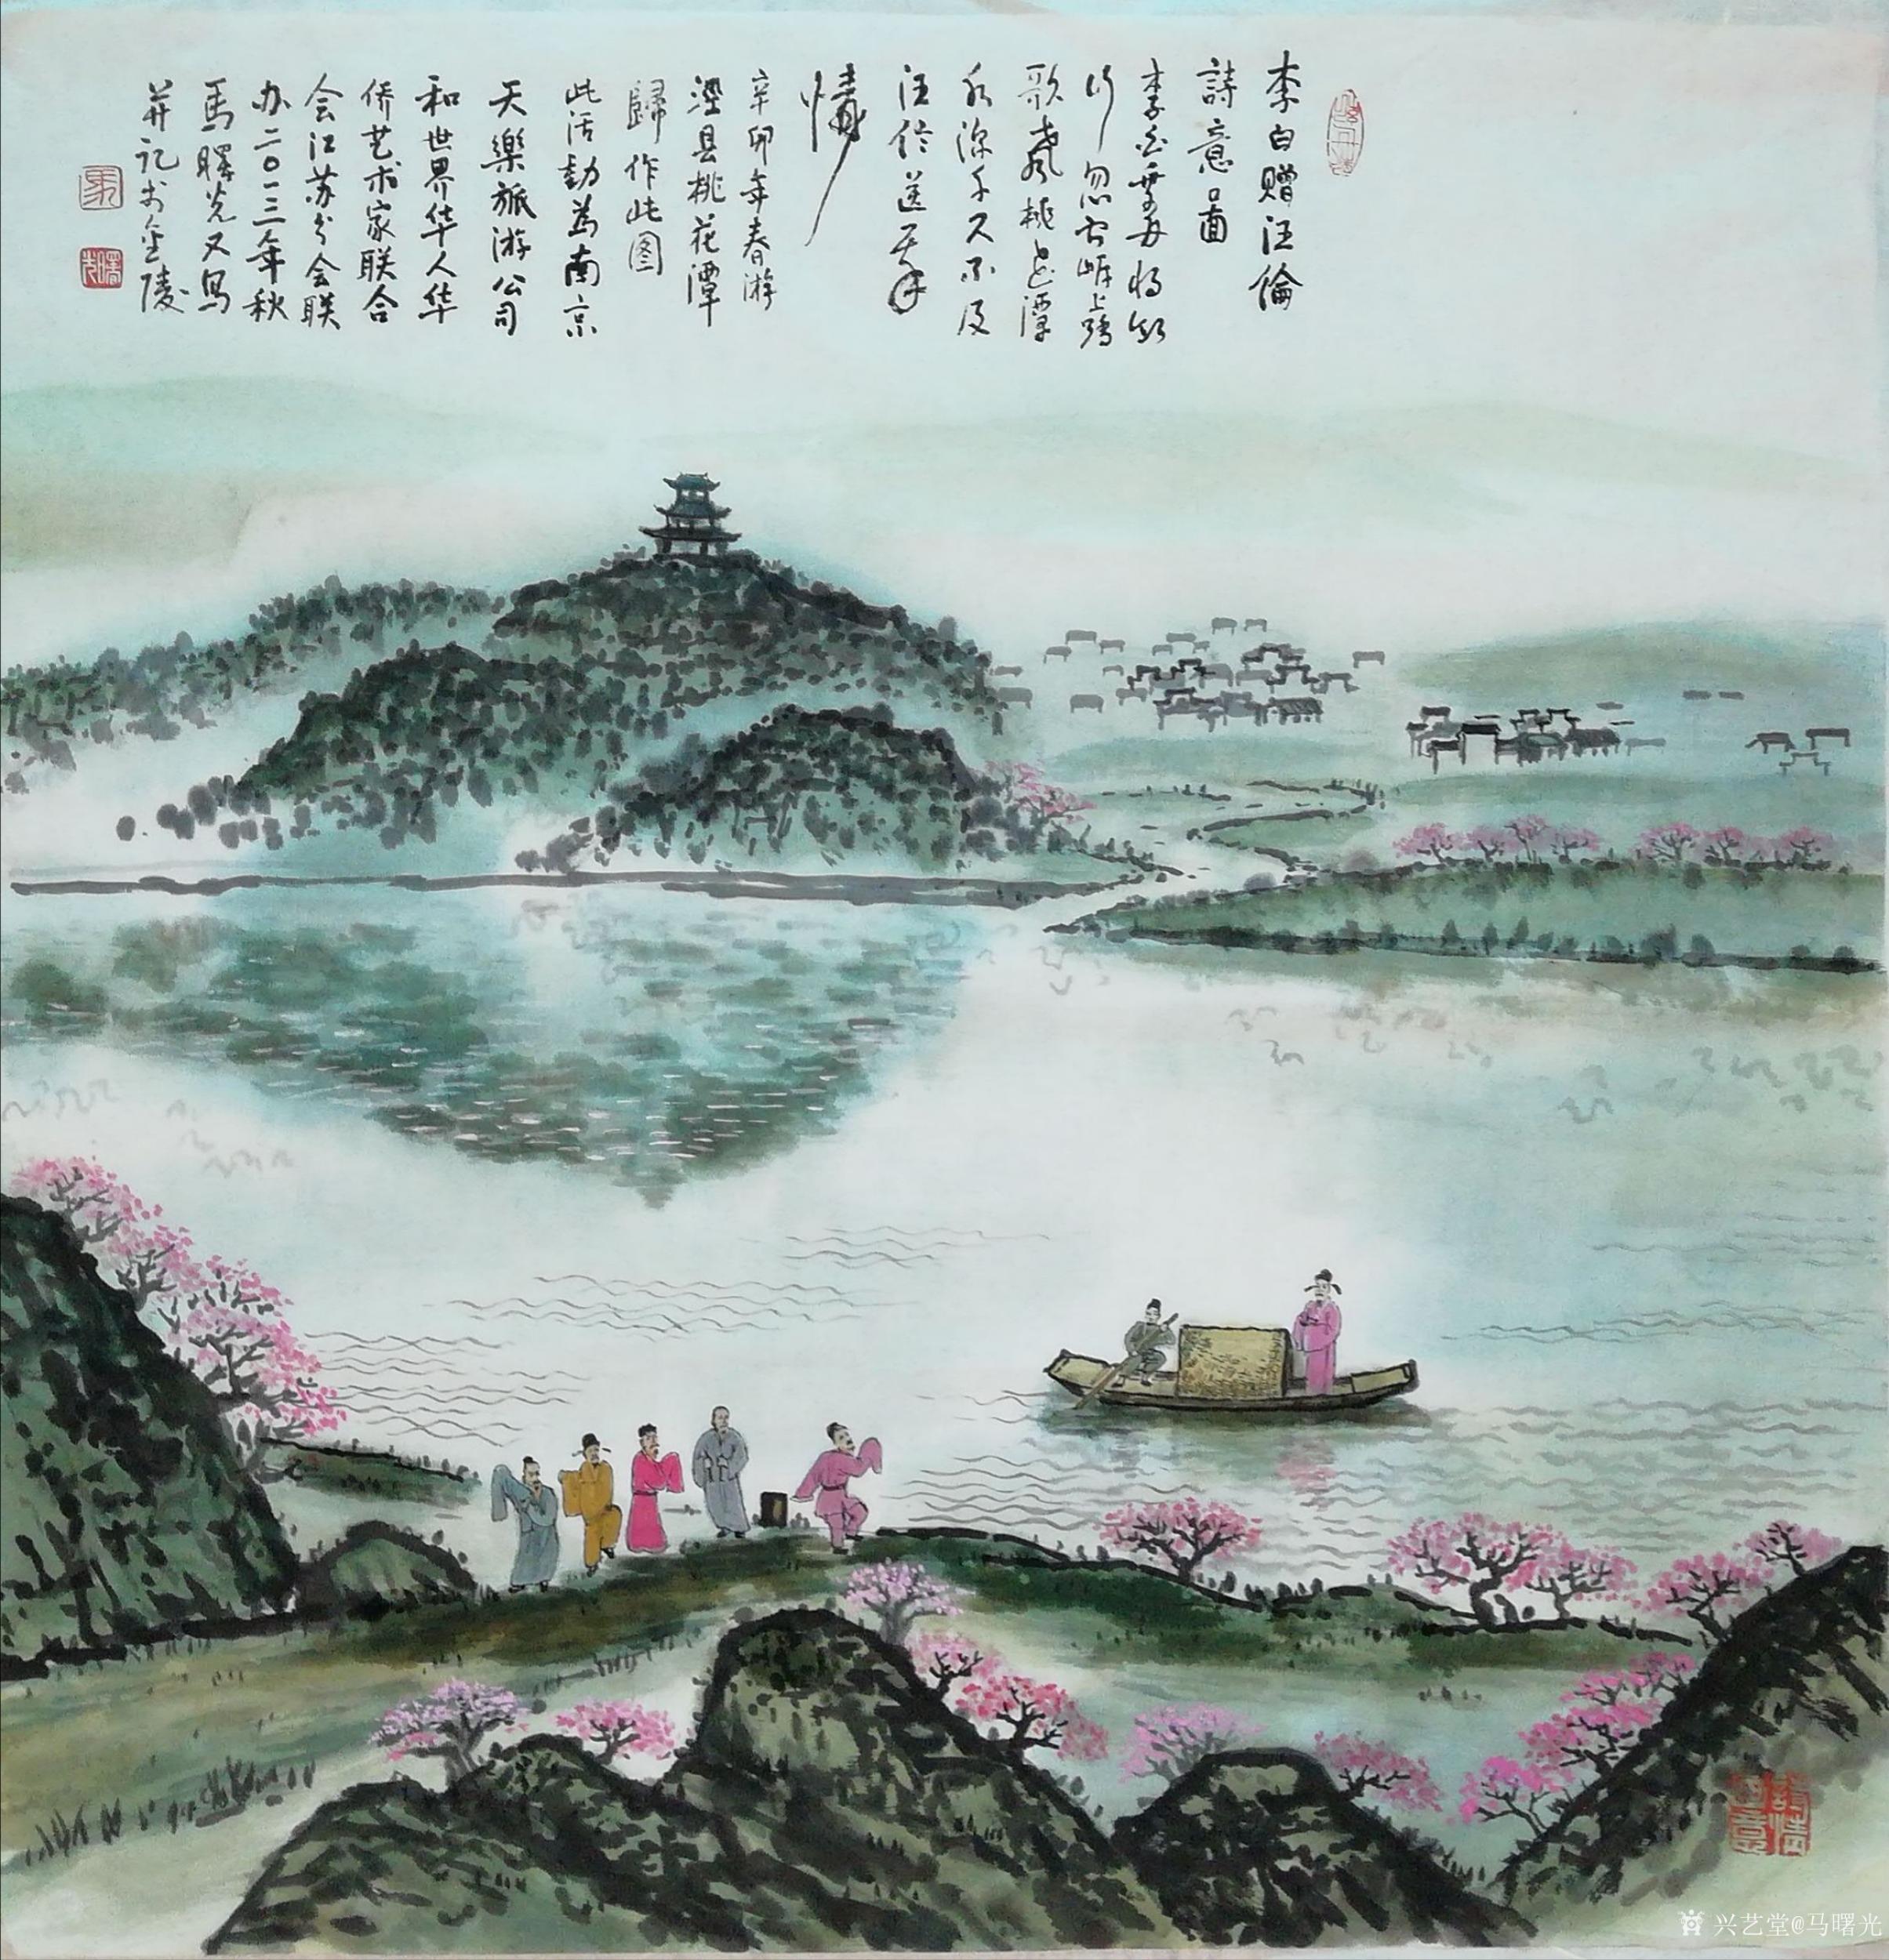 李白赠汪倫
詩意啚
李白乘舟将欲
行忽闻岸上踏
歌声桃花潭
水深千尺不及
汪伦送我
情
辛卯年春游
涇县桃花潭
歸作此图
此活動為南京
天樂旅游公司
和世界华人华
侨艺术家联合
会江苏分会联
办二〇一三年秋
馬曙光又写
并记于金陵
詩情
画意
兴艺堂@马曙光